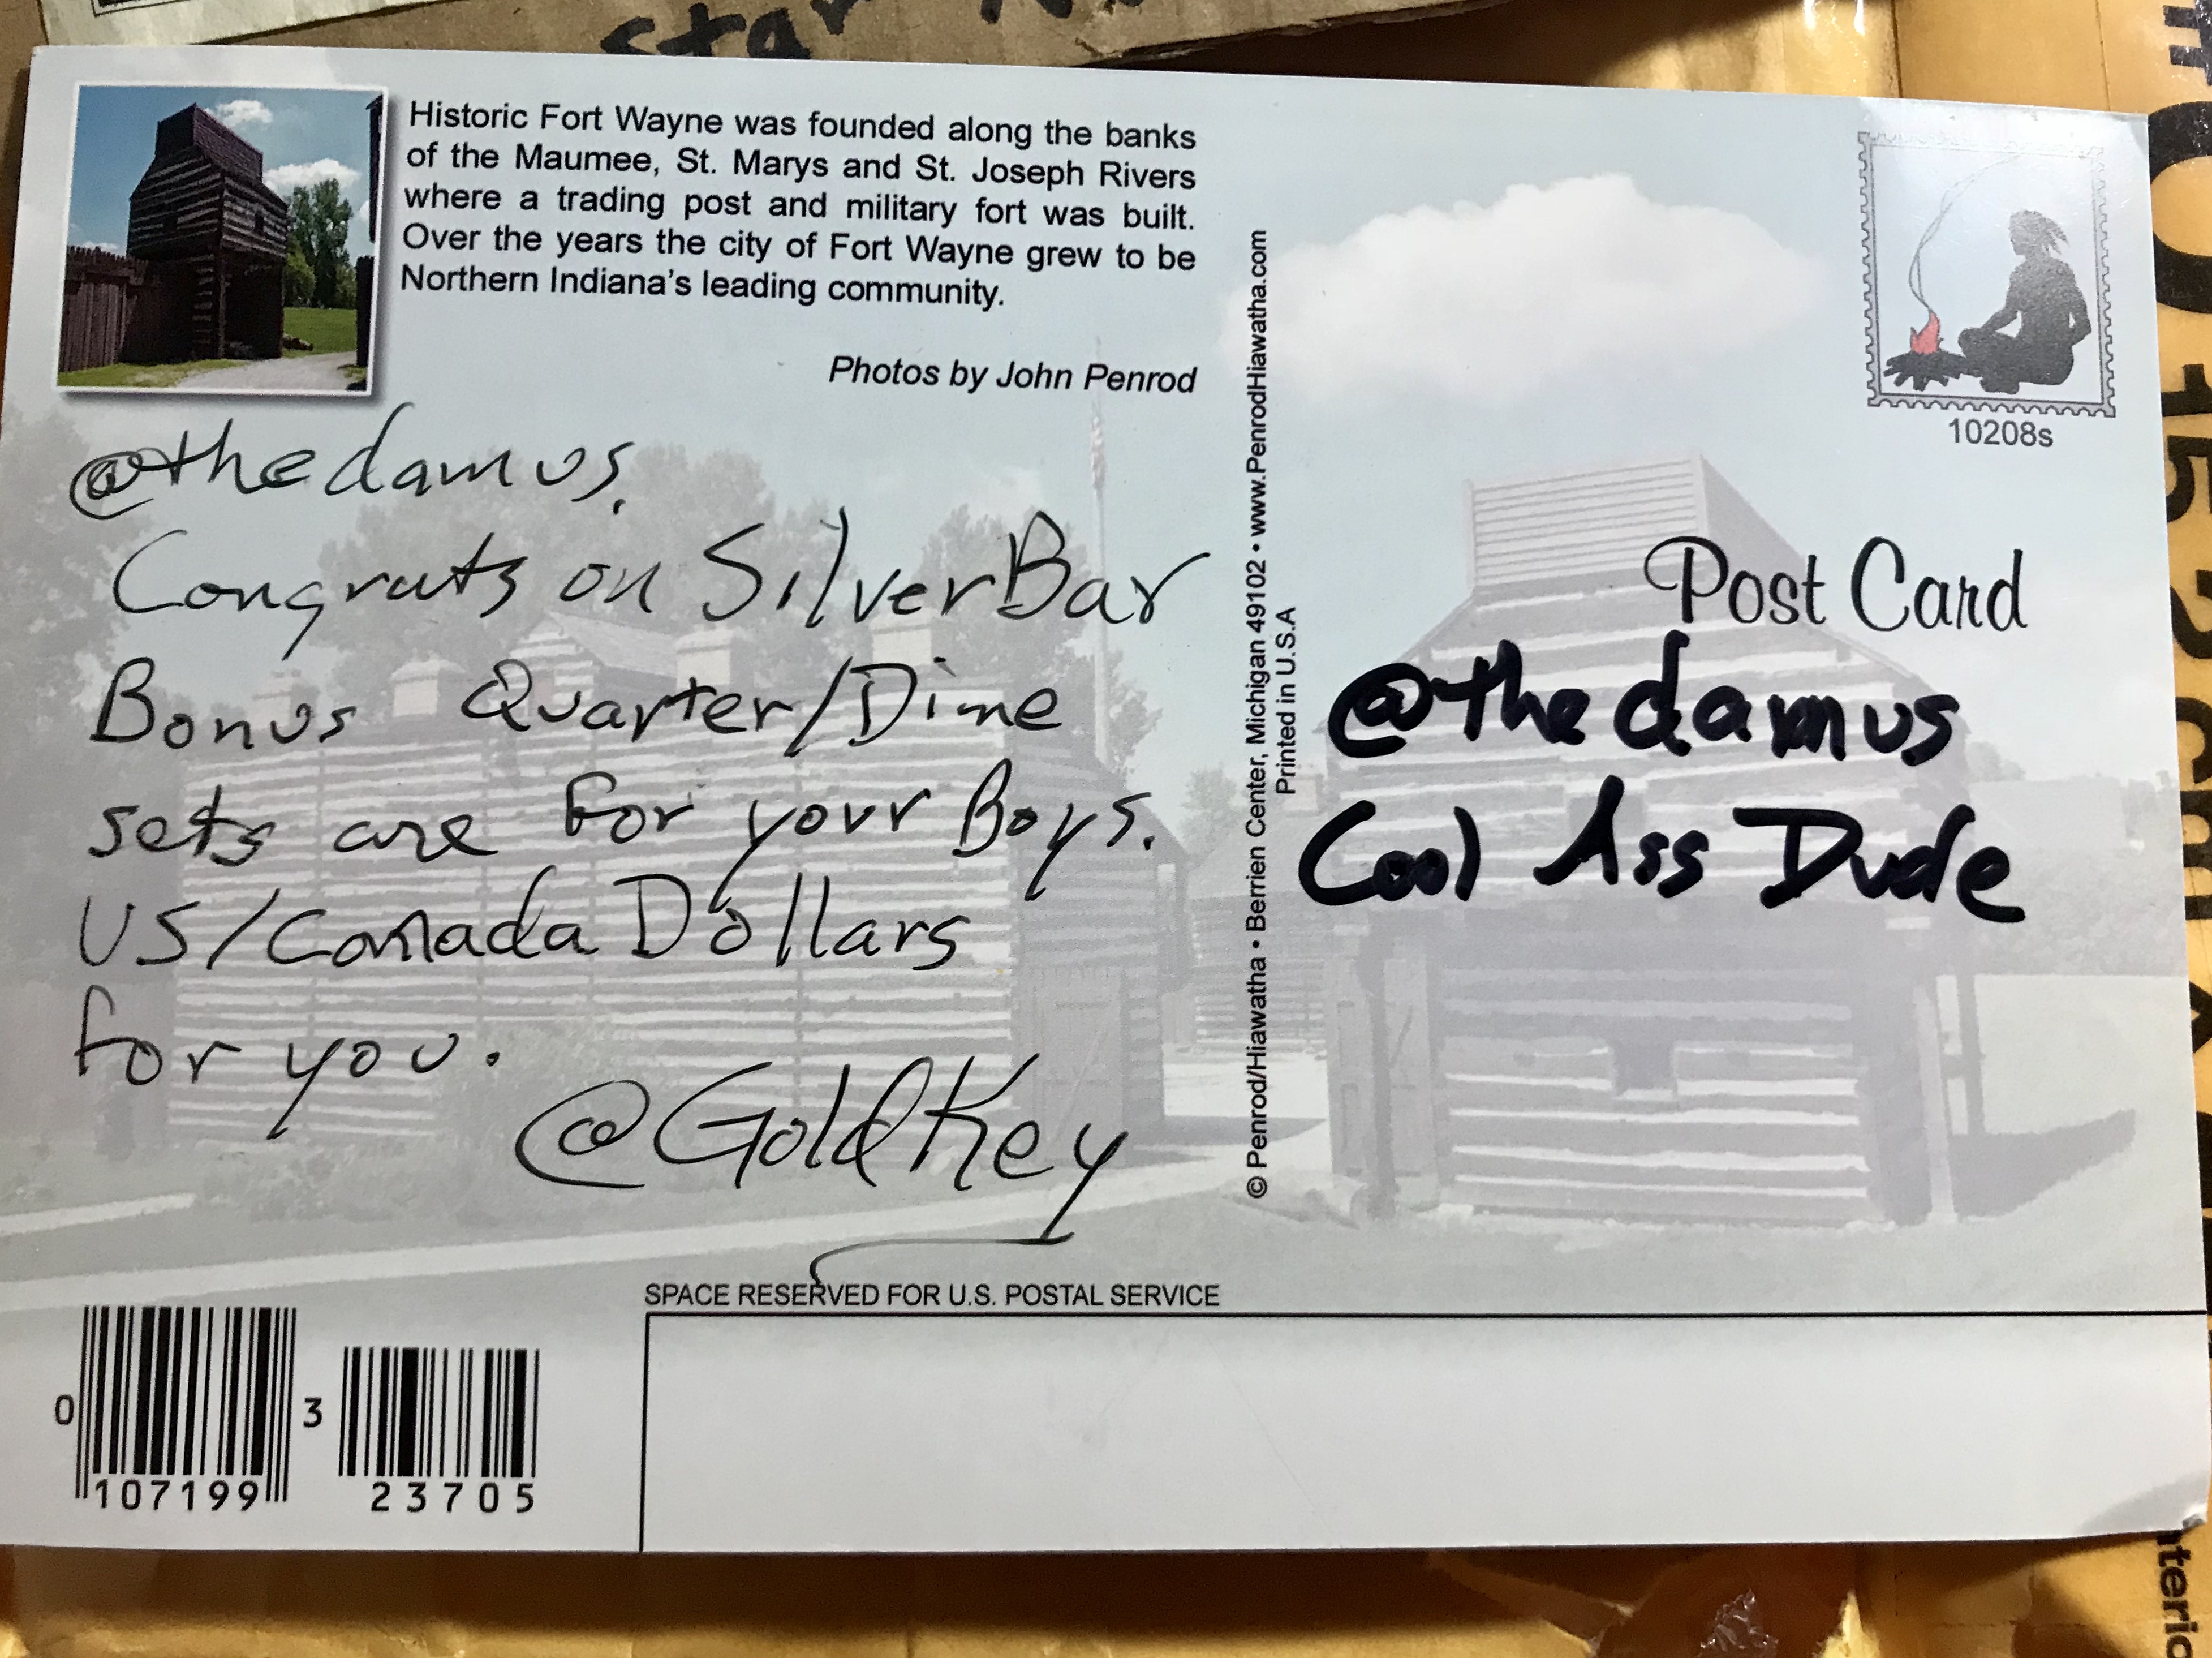 Star
Historic Fort Wayne was founded along the banks
of the Maumee, St. Marys and St. Joseph Rivers
where a trading post and military fort was built.
Over the years the city of Fort Wayne grew to be
Northern Indiana's leading community.
Photos by John Penrod
@thedamus,
Congrats on Silver Bar
Bonus Quarter/Dime
sets are for your Boys.
US/Canada Dollars
for you.
@GoldKey
SPACE RESERVED FOR U.S. POSTAL SERVICE
0 107199 3 23705
© Penrod/Hiawatha • Berrien Center, Michigan 49102 • www.PenrodHiawatha.com
Printed in U.S.A
10208s
Post Card
@thedamus
Cool Ass Dude